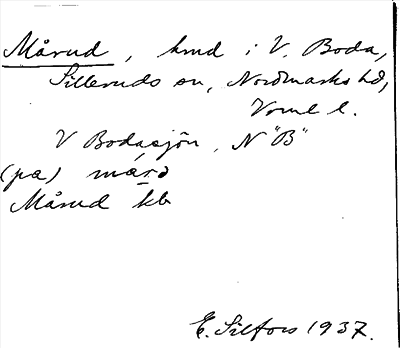 Mårud, hmd i V. Boda,
Silleruds sn, Nordmarks hd,
Vrml l.
V Bodasjön, N "B"
(pa) mård
Mårud kb
E. Silfors 1937.